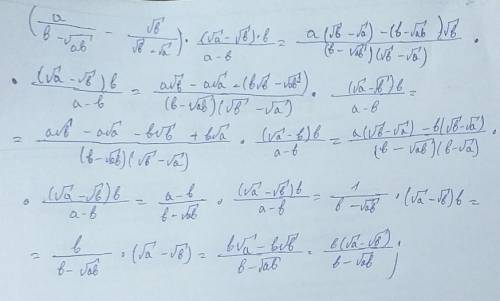 (a/(b-√ab) - √b/(√b-√a)) · (√a-√b)·b/(a-b) = (a(√b-√a)-(b-√ab)√b)/((b-√ab)(√b-√a)) ·
· (√a-√b)b/(a-b) = (a√b-a√a-(b√b-√ab²))/((b-√ab)(√b-√a)) · (√a-√b)b/(a-b) =
= (a√b-a√a-b√b+b√a)/((b-√ab)(√b-√a)) · (√a-b)b/(a-b) = (a(√b-√a)-b(√b-√a))/((b-√ab)(b-√a)) ·
· (√a-√b)b/(a-b) = (a-b)/(b-√ab) · (√a-√b)b/(a-b) = 1/(b-√ab) · (√a-√b)b =
= b/(b-√ab) · (√a-√b) = (b√a-b√b)/(b-√ab) = b(√a-√b)/(b-√ab) ;